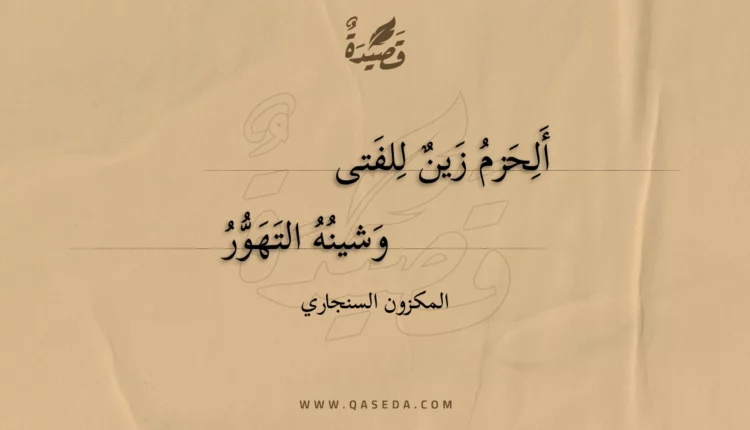 قَصِيْدَةٌ
أَلِحَزمُ زَينٌ لِلفَتى
وَشينُهُ التَهَوُّرُ
المكزون السنجاري
WWW.QASEDA.COM